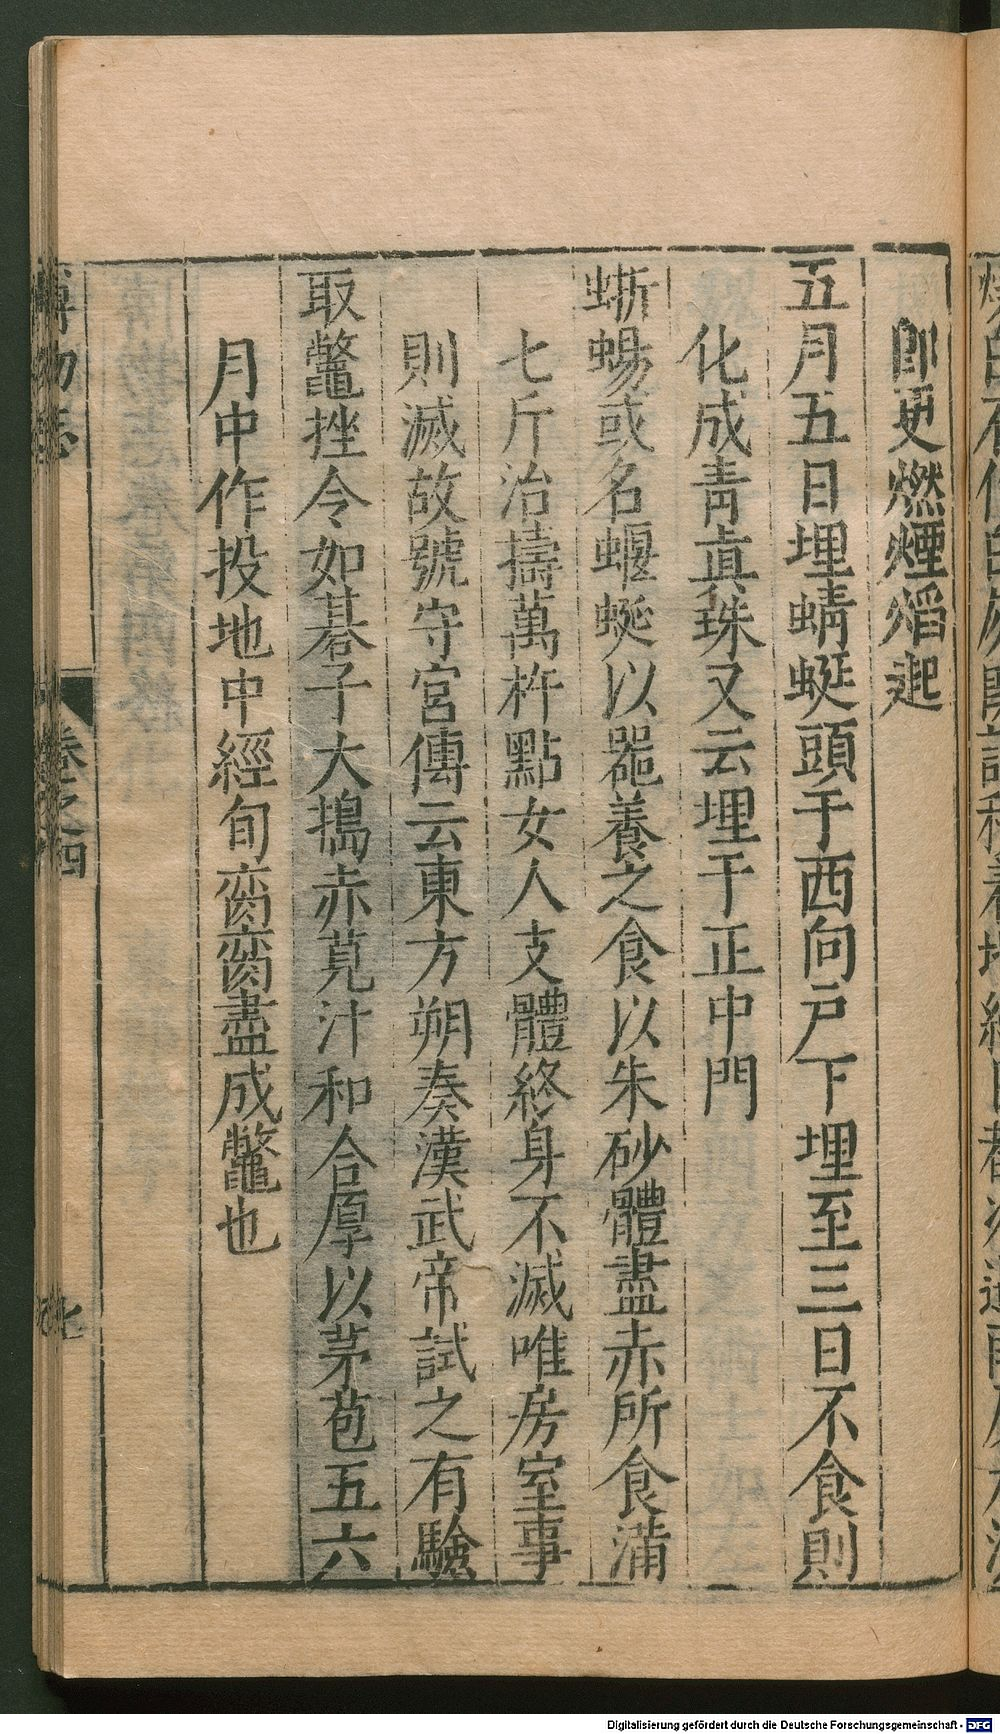 即更燃煙焰起
五月五日埋蜻蜓頭于西向戶下埋至三日不食則
化成青眞珠又云埋于正中門
蜥蜴或名蝘蜓以器養之食以朱砂體盡赤所食滿
七斤治擣萬杵點女人支體終身不滅唯房室事
則滅故號守宮傳云東方朔奏漢武帝試之有驗
取鼈挫令如碁子大搗赤莧汁和合厚以茅苞五六
月中作投地中經旬臠臠盡成鼈也
博物志
卷之四
Digitalisierung gefördert durch die Deutsche Forschungsgemeinschaft - DFG